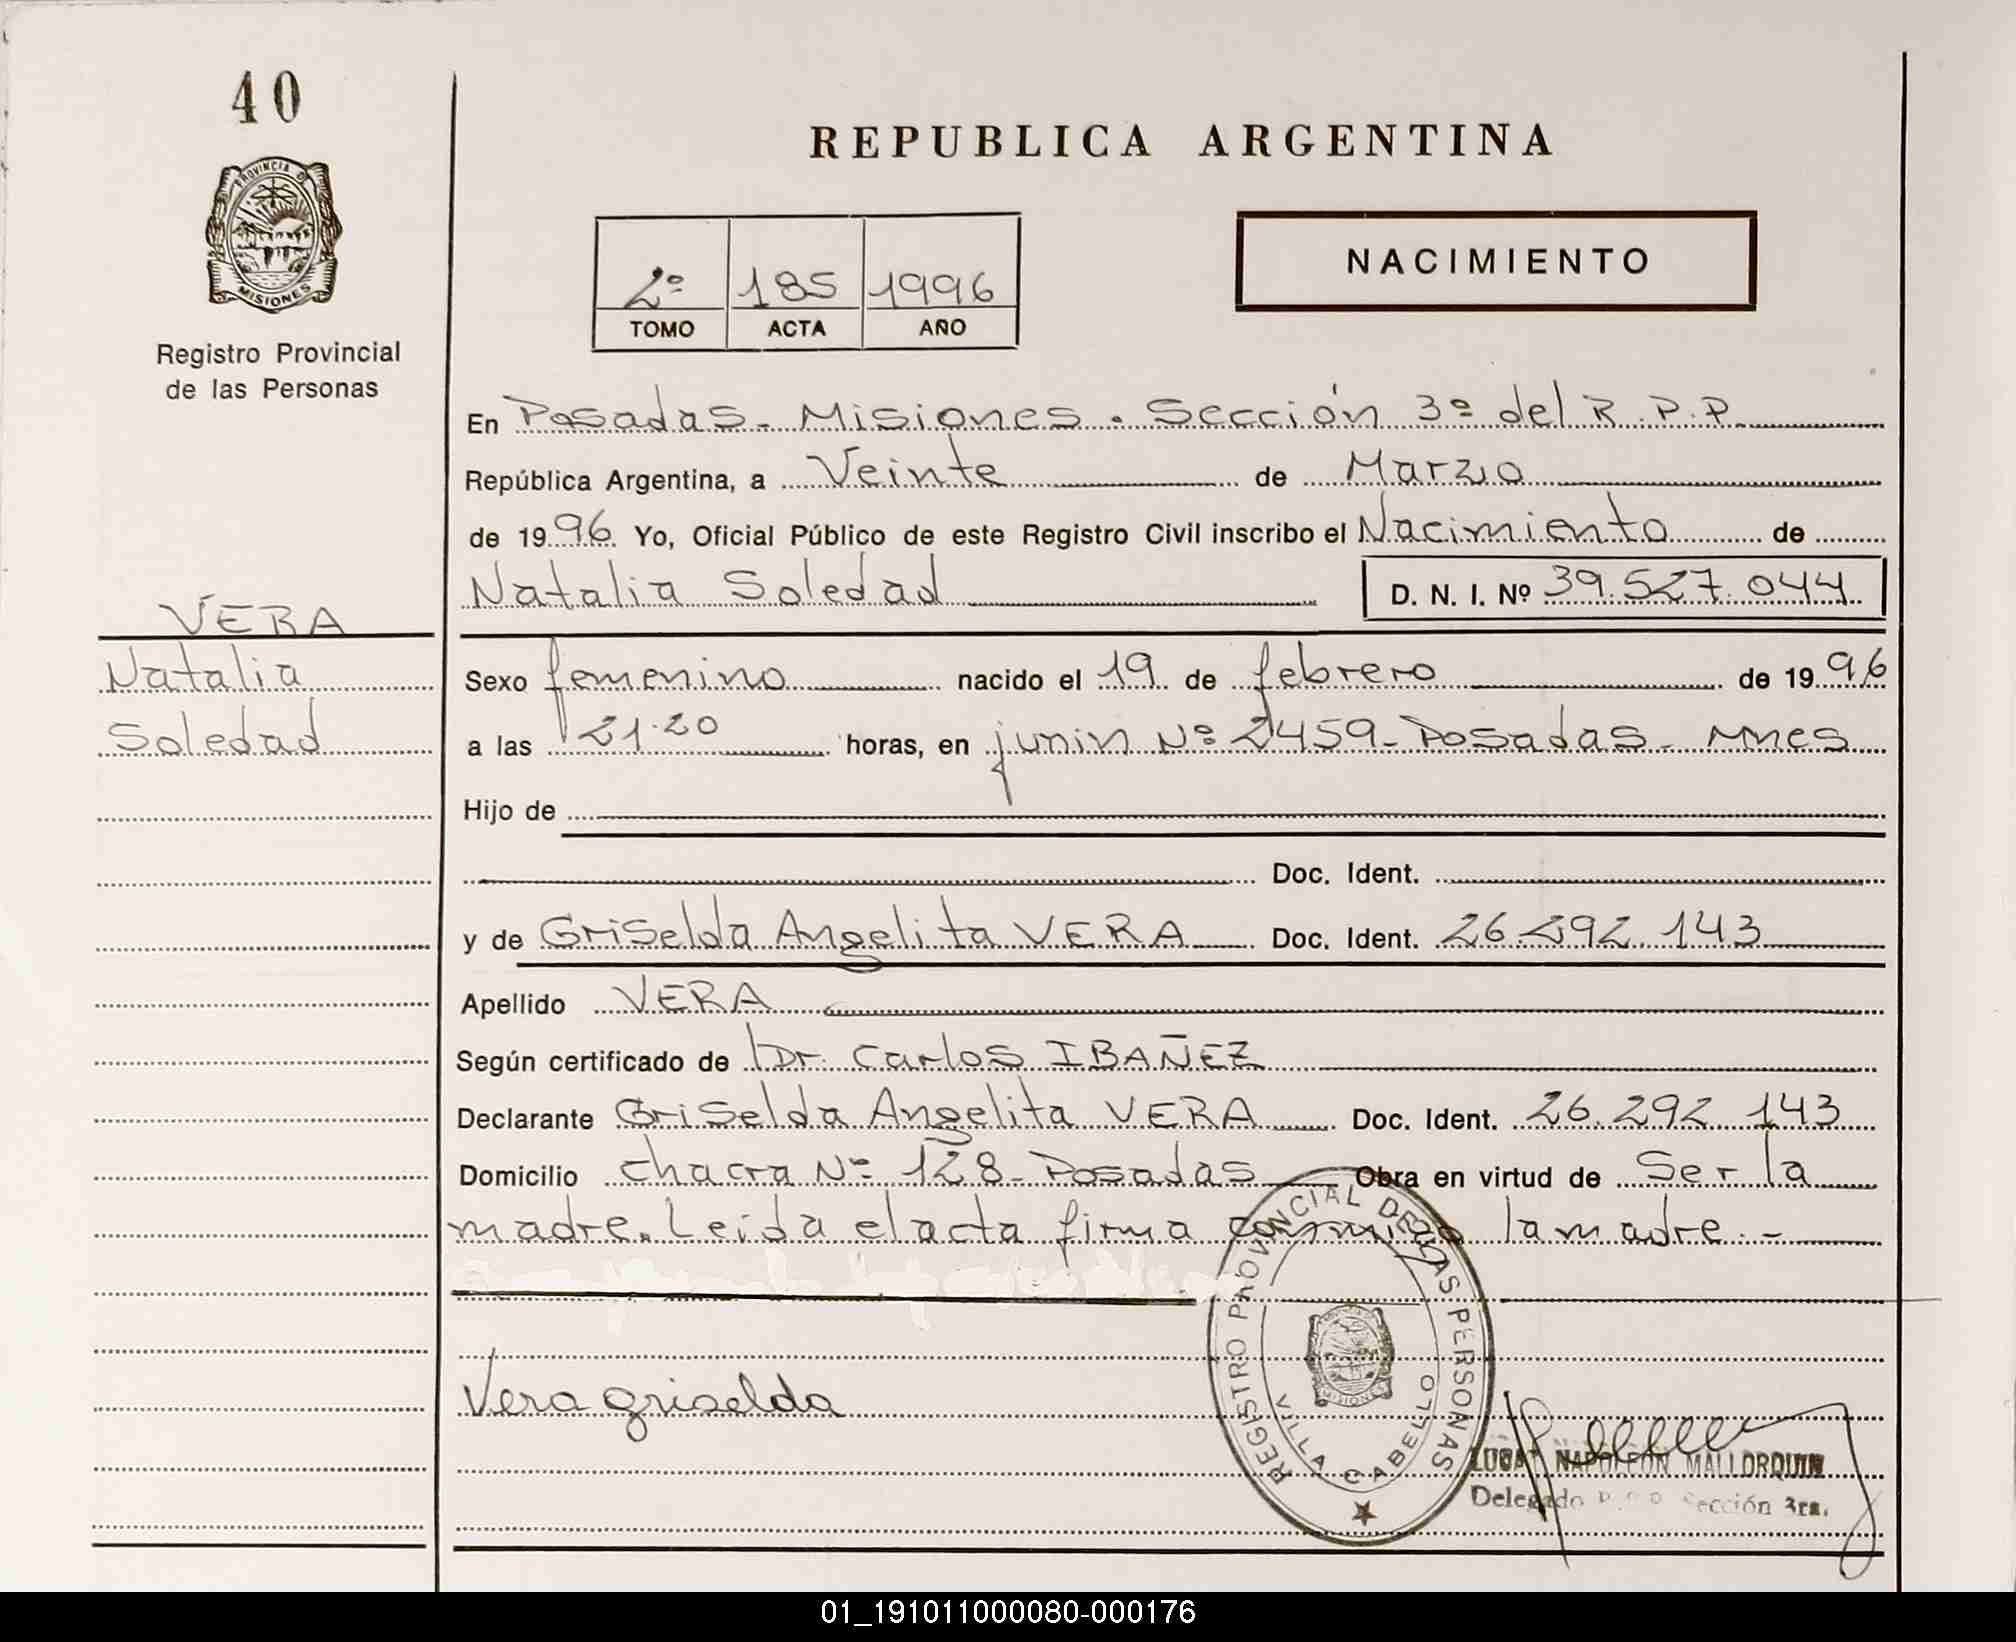 40
PROVINCIA D
MISIONES
Registro Provincial
de las Personas
REPUBLICA ARGENTINA
2º 185 1996
TOMO ACTA AÑO
NACIMIENTO
En Posadas - Misiones . Sección 3º del R.P.P.
República Argentina, a Veinte de Marzo
de 1996 Yo, Oficial Público de este Registro Civil inscribo el Nacimiento de
Natalia Soledad D. N. I. Nº 39.527.044
VERA
Natalia
Soledad
Sexo femenino nacido el 19 de febrero de 1996
a las 21.20 horas, en junin Nº 2459 - Posadas - Mnes
Hijo de
Doc. Ident.
y de Griselda Angelita VERA Doc. Ident. 26.292.143
Apellido VERA
Según certificado de Dr. Carlos IBAÑEZ
Declarante Griselda Angelita VERA Doc. Ident. 26.292.143
Domicilio chacra Nº 128 - Posadas Obra en virtud de Ser la
madre. Leida el acta firma conmigo la madre. -
REGISTRO PROVINCIAL DE LAS PERSONAS
MISIONES
VILLA CABELLO
Vera griselda
NAPOLEON MALLORQUIN
Delegado Sección 3ra.
01_191011000080-000176